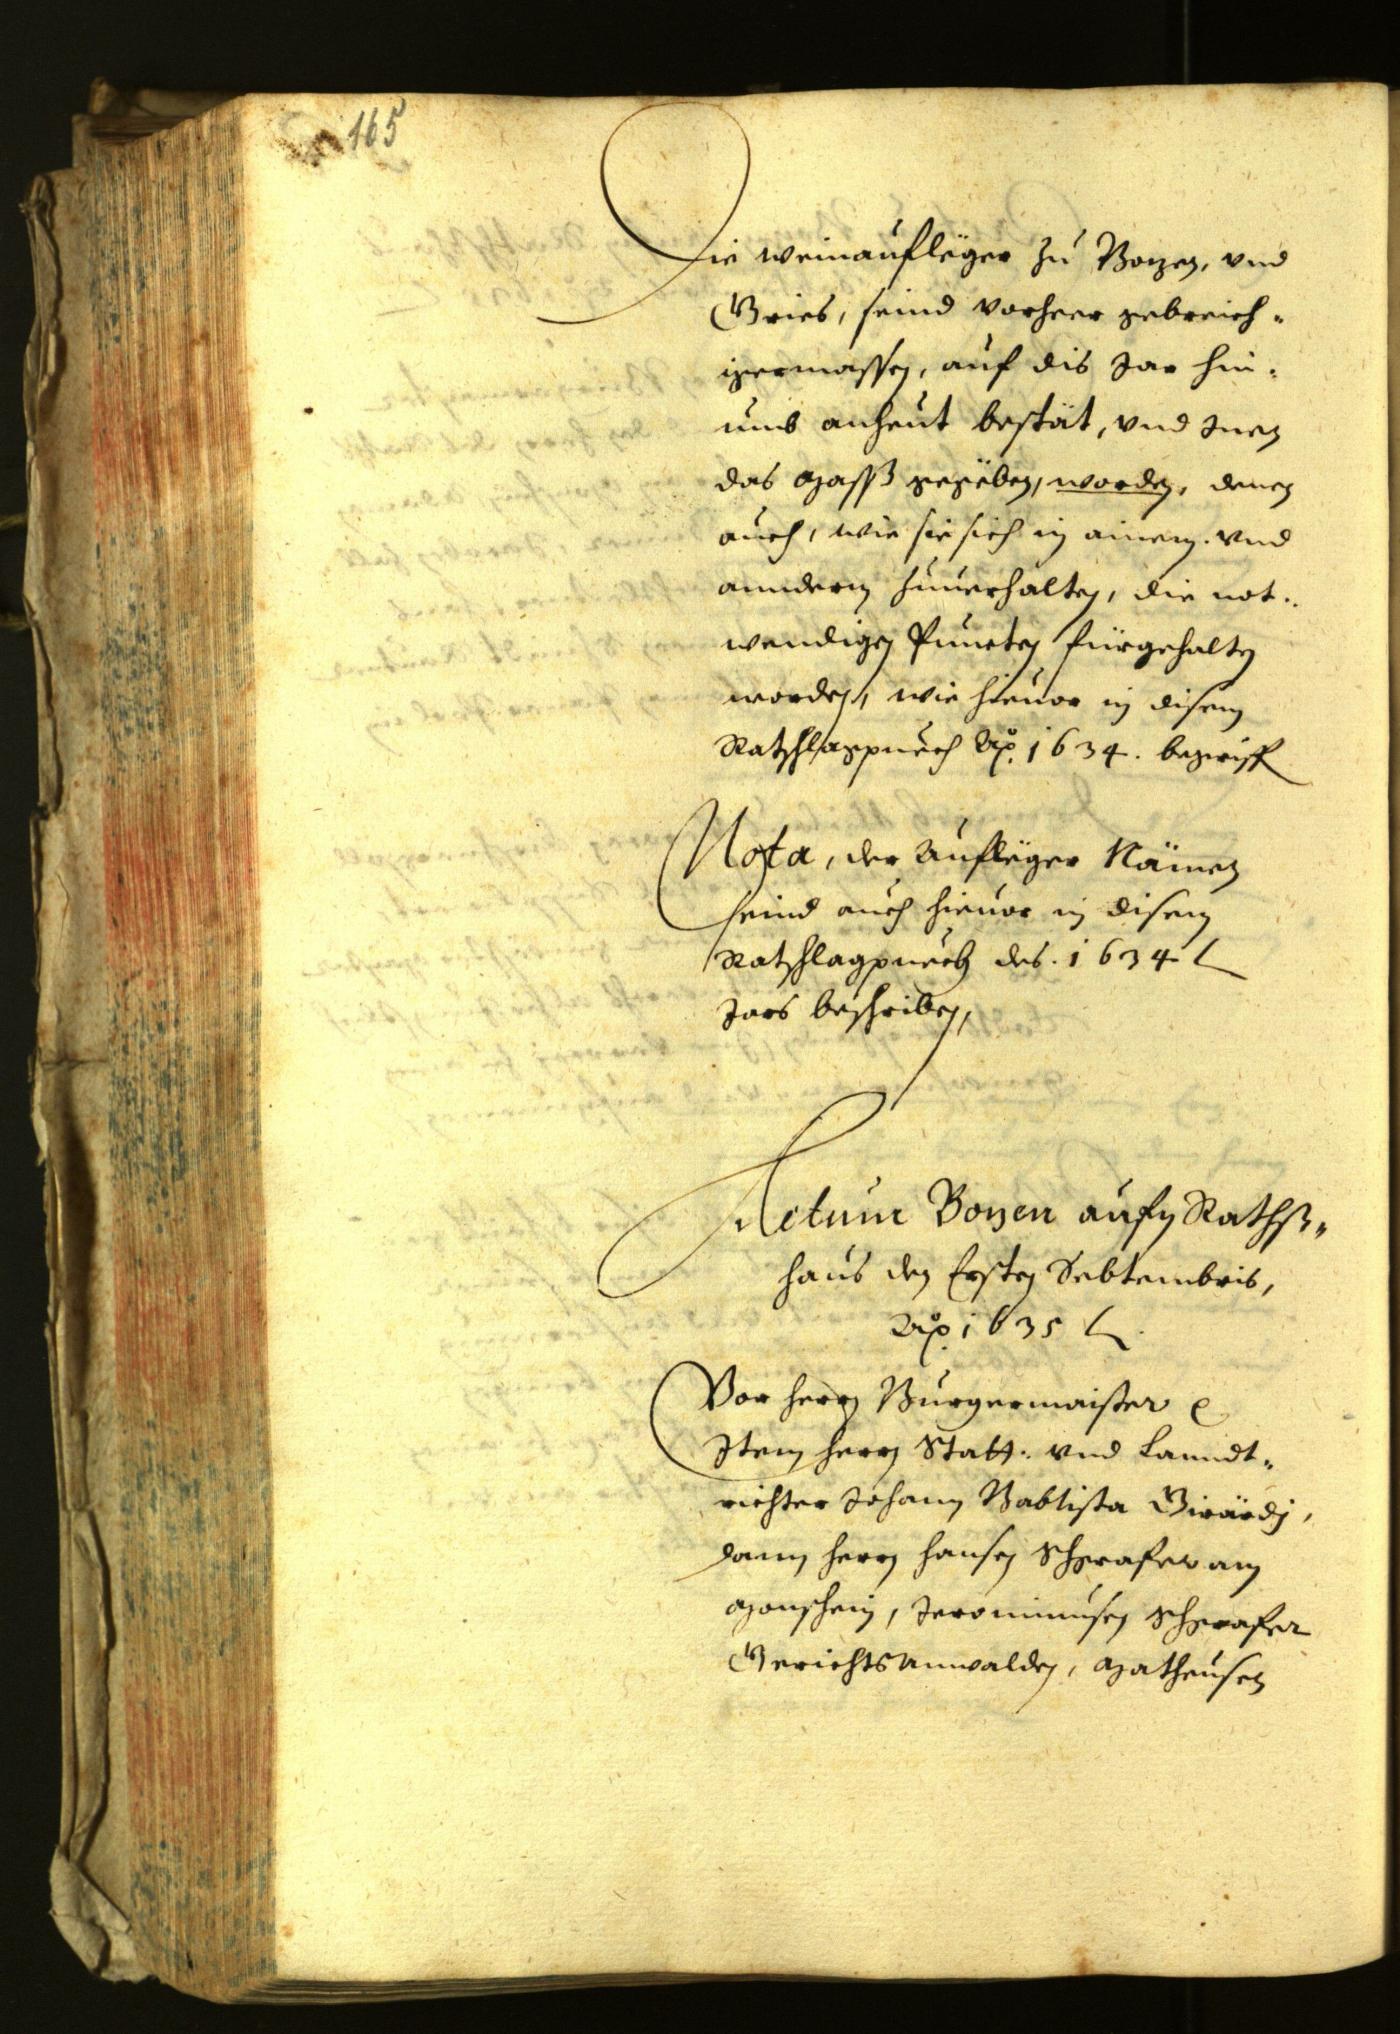 165
Die weinaufleger zu Bozen, vnd
Gries, seind vorheer gebreich-
igermassen, auf dis Jar hin-
umb anheut bestät, vnd Inen
das Maß gegëben, worden, denen
auch, wie sie sich in ainem. vnd
anndern zuuerhalten, die not-
wendigen Puncten fürgehalten
worden, wie hieuor in disem
Ratschlagpuech Ao. 1634. begriff
Nota, der Aufleger Nämen
seind auch hieuor in disem
Ratschlagpuech des. 1634
Jars beschriben,
Actum Bozen aufm Rathß-
haus den Ersten Sebtembris,
Ao. 1635
Vor herrn Burgermaister
Item herrn Statt. vnd Lanndt-
richter Johann Babtista Girärdj,
dann herrn Hansen Schgrafer am
Monschein, Jeronimusen Schgrafer
Gerichts Anwalden, Matheusen